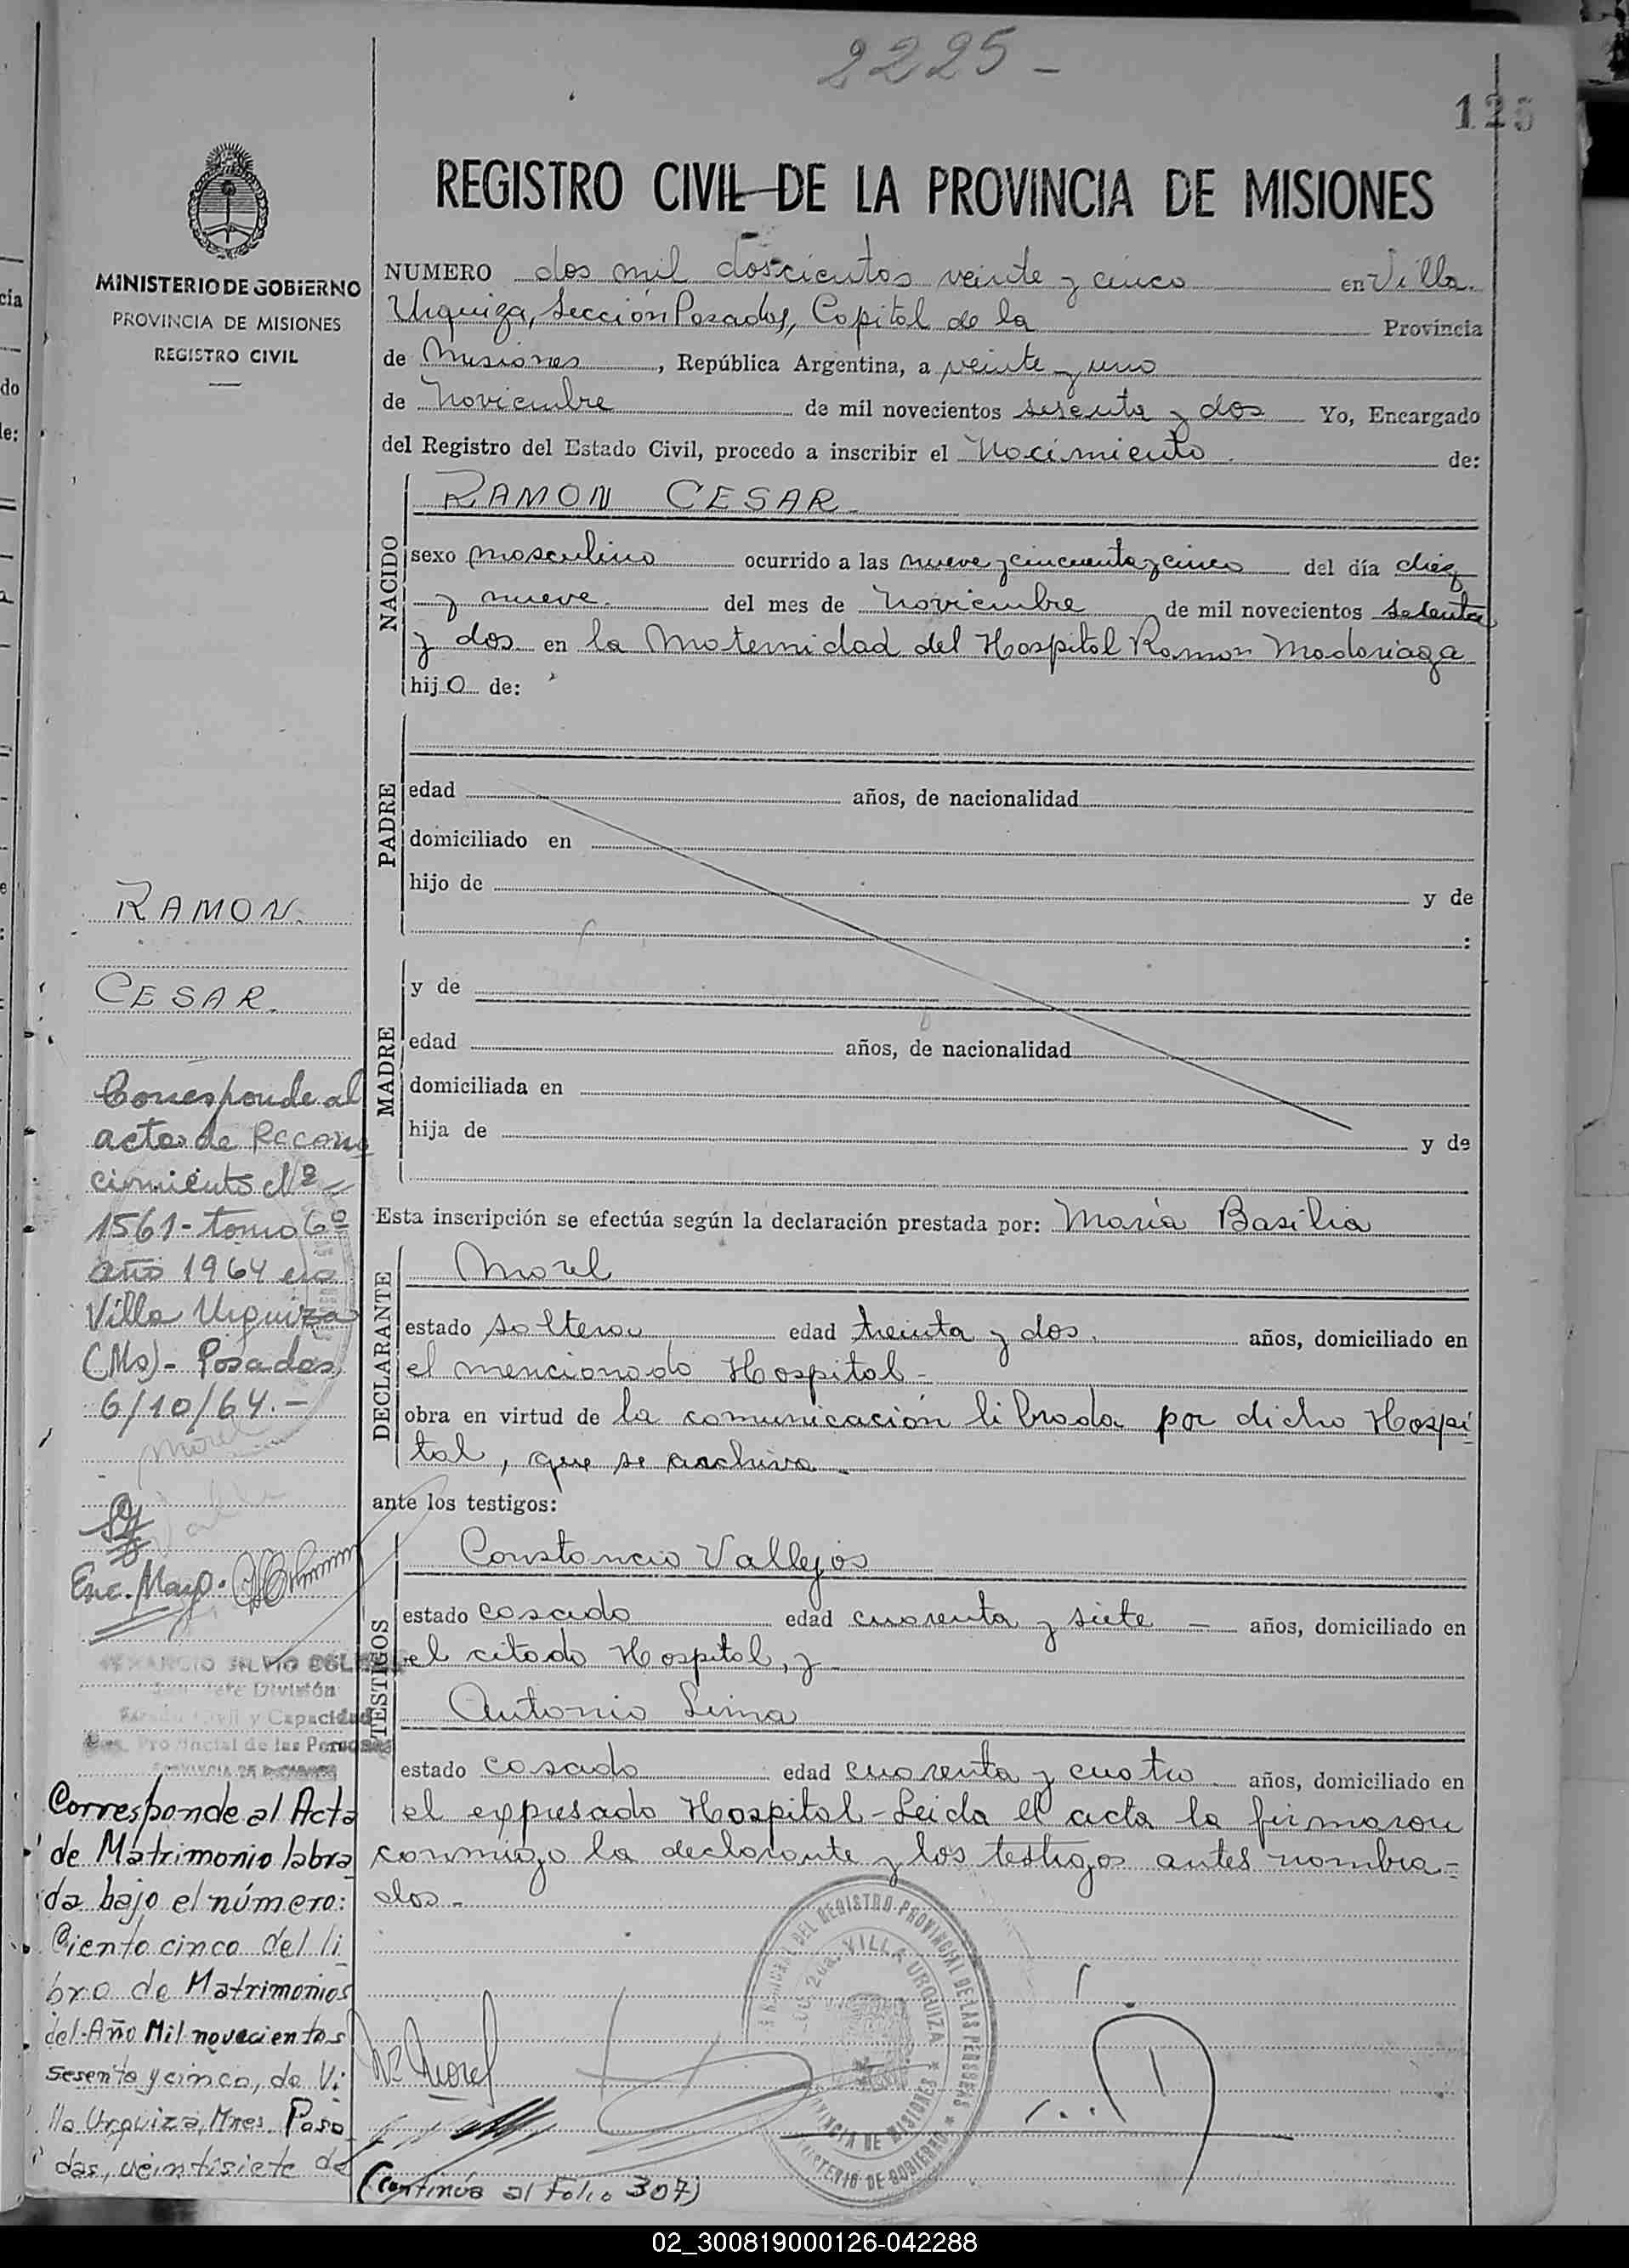 2225-
125
REGISTRO CIVIL DE LA PROVINCIA DE MISIONES
MINISTERIO DE GOBIERNO
PROVINCIA DE MISIONES
REGISTRO CIVIL
NUMERO dos mil doscientos veinte y cinco en Villa
Urquiza, Sección Posadas, Capital de la Provincia
de Misiones, República Argentina, a veinte y uno
de Noviembre de mil novecientos sesenta y dos Yo, Encargado
del Registro del Estado Civil, procedo a inscribir el Nacimiento de:
NACIDO
RAMON CESAR
sexo masculino ocurrido a las nueve y cincuenta y cinco del día diez
y nueve del mes de Noviembre de mil novecientos sesenta
y dos en la Maternidad del Hospital Ramon Madariaga
hijo de:
PADRE
edad años, de nacionalidad
domiciliado en
hijo de y de
:
MADRE
y de
edad años, de nacionalidad
domiciliada en
hija de y de
Esta inscripción se efectúa según la declaración prestada por: María Basilia
DECLARANTE
Morel
estado soltera edad treinta y dos. años, domiciliado en
el mencionado Hospital-
obra en virtud de la comunicación librada por dicho Hospi
tal, que se archiva-
ante los testigos:
TESTIGOS
Constancio Vallejos
estado casado edad cuarenta y siete - años, domiciliado en
el citado Hospital, y
Antonio Lima
estado casado edad cuarenta y cuatro años, domiciliado en
el expresado Hospital-Leida el acta la firmaron
conmigo la declarante y los testigos antes nombra-
dos-
M. Morel
(Continúa al Folio 307)
RAMON.
CESAR.
Corresponde al
acta de Recono
cimiento Nº
1561-tomo 6º
año 1964 en
Villa Urquiza
(Ms)- Posadas
6/10/64.-
Morel
Enc. Mayo.
SILVIO
División
Civil y Capacidad
Provincial de las Personas
Corresponde al Acta
de Matrimonio labra
da bajo el número:
Ciento cinco del li
bro de Matrimonios
del Año Mil novecientos
sesenta y cinco, de Vi
lla Urquiza, Mnes. Posa
das, veintisiete de
DEL REGISTRO PROVINCIAL DE LAS PERSONAS
2da. VILLA URQUIZA
PROVINCIA DE MISIONES
MINISTERIO DE GOBIERNO
02_300819000126-042288